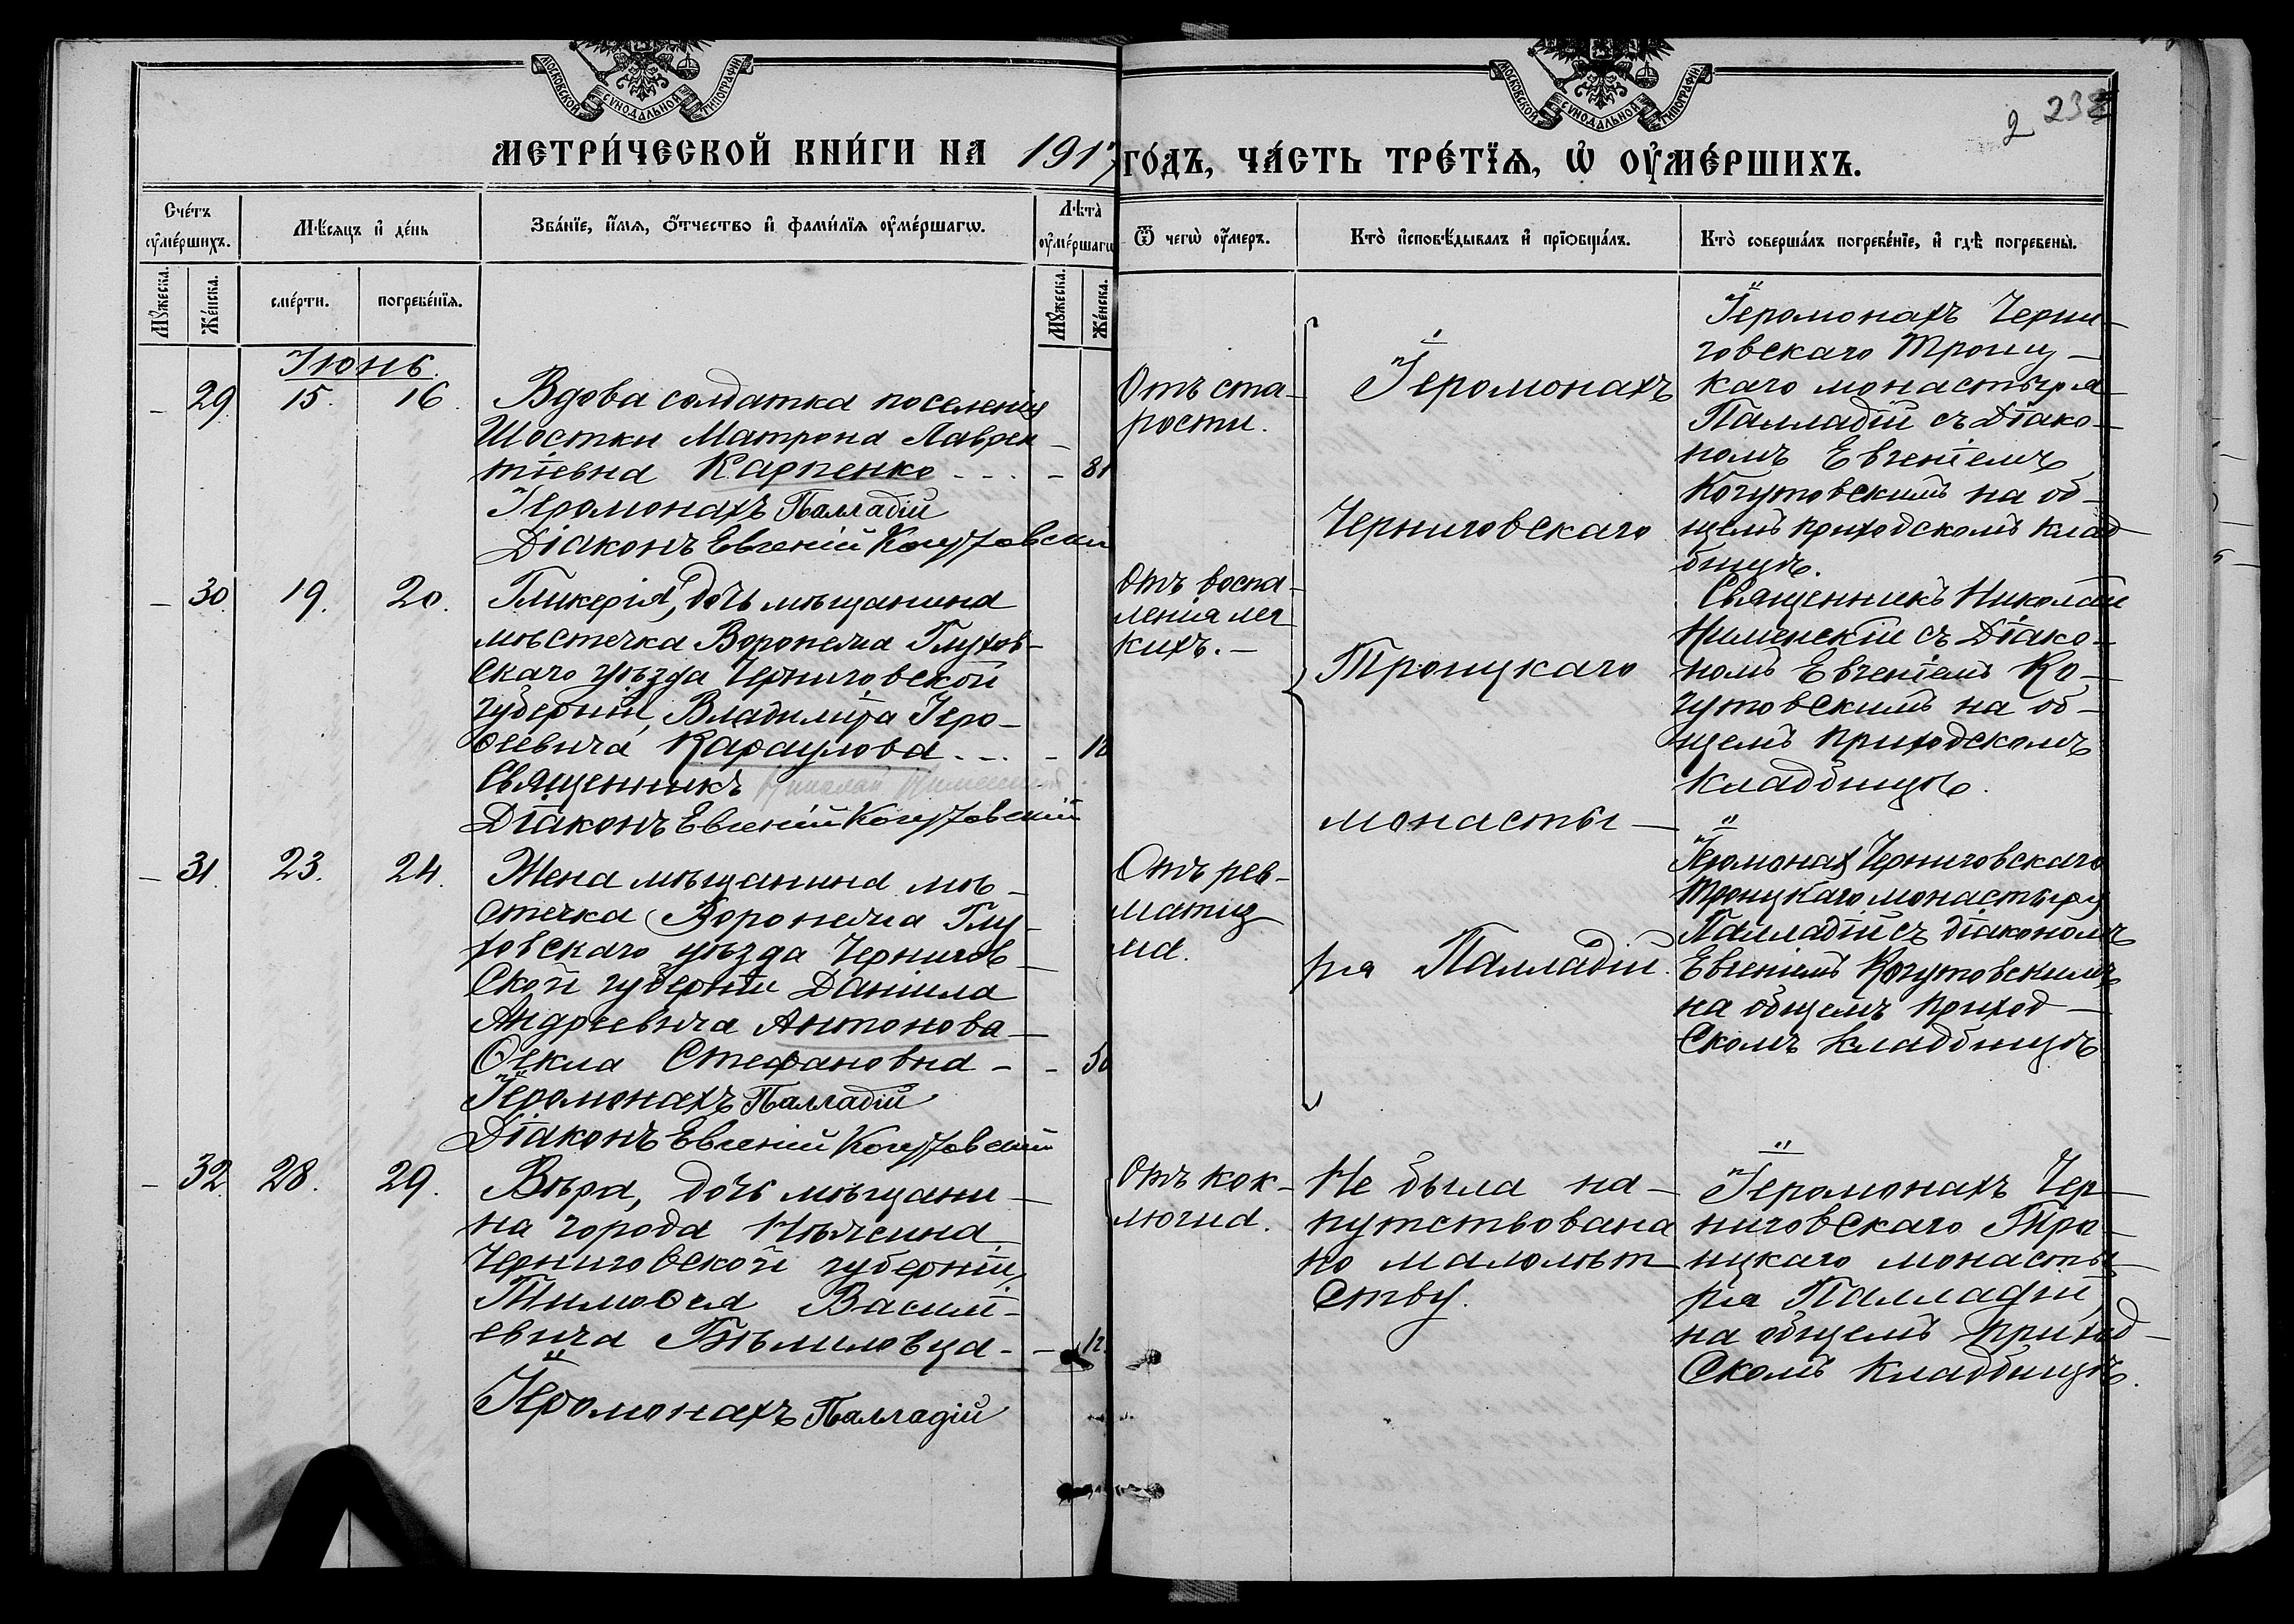 МОСКОВСКОЙ СѴНОДАЛЬНОЙ ТИПОГРАФІИ
МОСКОВСКОЙ СѴНОДАЛЬНОЙ ТИПОГРАФІИ
2
МЕТРИ́ЧЕСКОЙ КНИ́ГИ НА 1917
ГО́ДЪ, ЧА́СТЬ ТРЕ́ТЇѦ, Ѡ҆ ОУ҆МЕ́РШИХЪ.
Сче́тъ оу҆ме́ршихъ.
Мѣ́сѧцъ и҆ де́нь
Зва́нїе, и҆́мѧ, ѻ҆́тчество и҆ фами́лїѧ оу҆ме́ршагѡ.
Лѣта̀ оу҆ме́ршагѡ
Ѿ чегѡ̀ оу҆́меръ.
Кто̀ и҆сповѣ́дывалъ и҆ прїѻбща́лъ.
Кто̀ соверша́лъ погребе́нїе, и҆ гдѣ̀ погребены̀.
Мꙋ́жеска.
Же́нска.
сме́рти.
погребе́нїѧ.
Мꙋ́жеска.
Же́нска.
Іюнь.
- 29. 15. 16.
Вдова солдатка поселенія
Шостки Матрона Лаврен-
тіевна Карпенко - - - - 81
Іеромонахъ Палладій
Діаконъ Евгеній Когутовскій
Отъ ста-
рости.
Іеромонахъ
Черниговскаго
Троицкаго
монасты-
ря Палладій.
Іеромонахъ Черни-
говскаго Троиц-
каго монастыря
Палладій съ Діако-
номъ Евгеніемъ
Когутовскимъ на об-
щемъ приходскомъ клад-
бищѣ.
- 30. 19. 20.
Гликерія, дочь мѣщанина
мѣстечка Воронежа Глухов-
скаго уѣзда Черниговской
губерніи, Владиміра Іеро-
ѳеевича Караулова - - -
Священникъ Николай
Діаконъ Евгеній Когутовскій
Отъ воспа-
ленія лег-
кихъ. -
Священникъ Николай
съ Діако-
номъ Евгеніемъ Ко-
гутовскимъ на об-
щемъ приходскомъ
кладбищѣ.
- 31. 23. 24.
Жена мѣщанина мѣ-
стечка Воронежа Глу-
ховскаго уѣзда Чернигов-
ской губерніи Даніила
Андреевича Антонова -
Ѳекла Стефановна - - 50
Іеромонахъ Палладій
Діаконъ Евгеній Когутовскій
Отъ рев-
матиз-
ма.
Іеромонахъ Черниговскаго
Троицкаго монастыря
Палладій съ діакономъ
Евгеніемъ Когутовскимъ
на общемъ приход-
скомъ кладбищѣ
- 32. 28. 29.
Вѣра, дочь мѣщани-
на города Нѣжина
Черниговской губерніи,
Тимоѳея Василі-
евича Бѣлиловца - -
Іеромонахъ Палладій
Отъ кок-
люша.
Не была на-
путствована
по малолѣт-
ству.
Іеромонахъ Чер-
ниговскаго Тро-
ицкаго монасты-
ря Палладій,
на общемъ приход-
скомъ кладбищѣ.